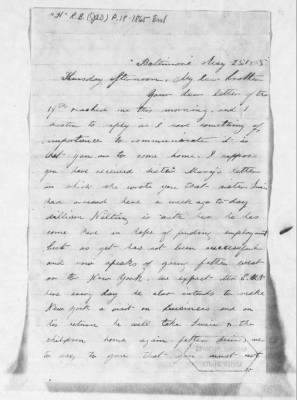 "H" R.B. (JAO) P, 18-1865 Encl
Baltimore May 25th
Thursday afternoon, My dear brother
Your dear letter of the
19th reached me this morning, and I
desire to reply as I have something of
importance to communicate it is
that you are to come home. I suppose
you have received sister Mary's letter
in which she wrote you that sister
had arrived here a week ago to-day
William is with her he has
come here in hope of finding employment
but as yet has not been successful
and now speaks of going farther west
or to New York. We expect
here every day he also intends to make
New York a visit on business and on
his return he will take Susie & the
children home again father me
to say to you that you must not